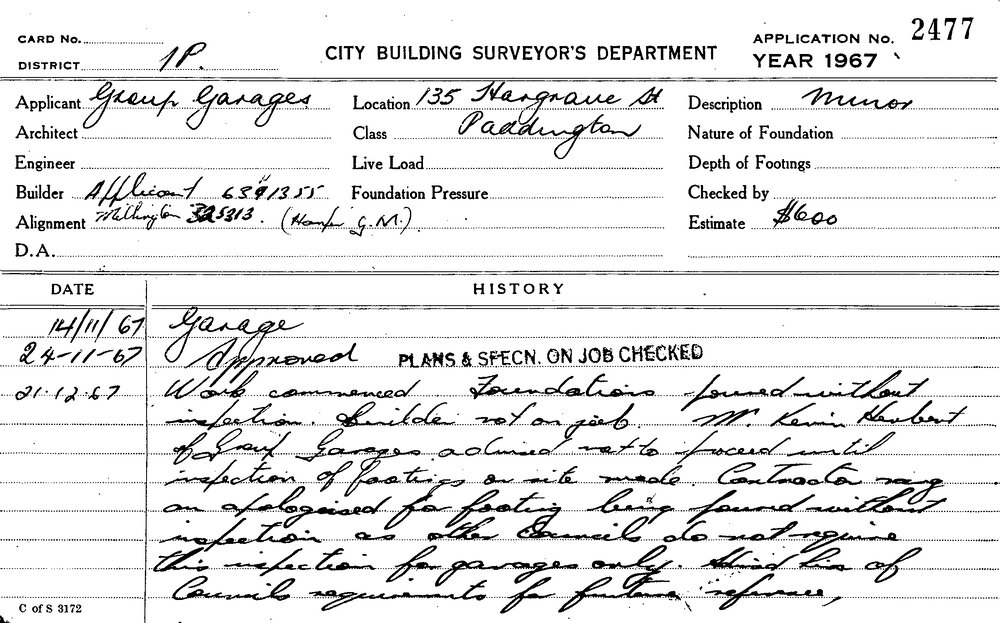 CARD No.
DISTRICT 1P.
CITY BUILDING SURVEYOR'S DEPARTMENT
APPLICATION No. 2477
YEAR 1967
Applicant Group Garages
Location 135 Hargrave St
Paddington
Description Minor
Architect
Class
Nature of Foundation
Engineer
Live Load
Depth of Footings
Builder Applicant
Foundation Pressure
Checked by
Alignment 325313. G.M.).
Estimate $600
D.A.
DATE HISTORY
14/11/67 Garage
24-11-67 Approved PLANS & SPECN. ON JOB CHECKED
21.12.67 Work commenced Foundations poured without
inspection. Builder not on job. Mr. Kevin Herbert
of Group Garages advised not to proceed until
inspection of footings on site made. Contractor rang
an apologised for footing being poured without
inspection as other Councils do not require
this inspection for garages only. Advised him of
Councils requirements for future reference,
C of S 3172